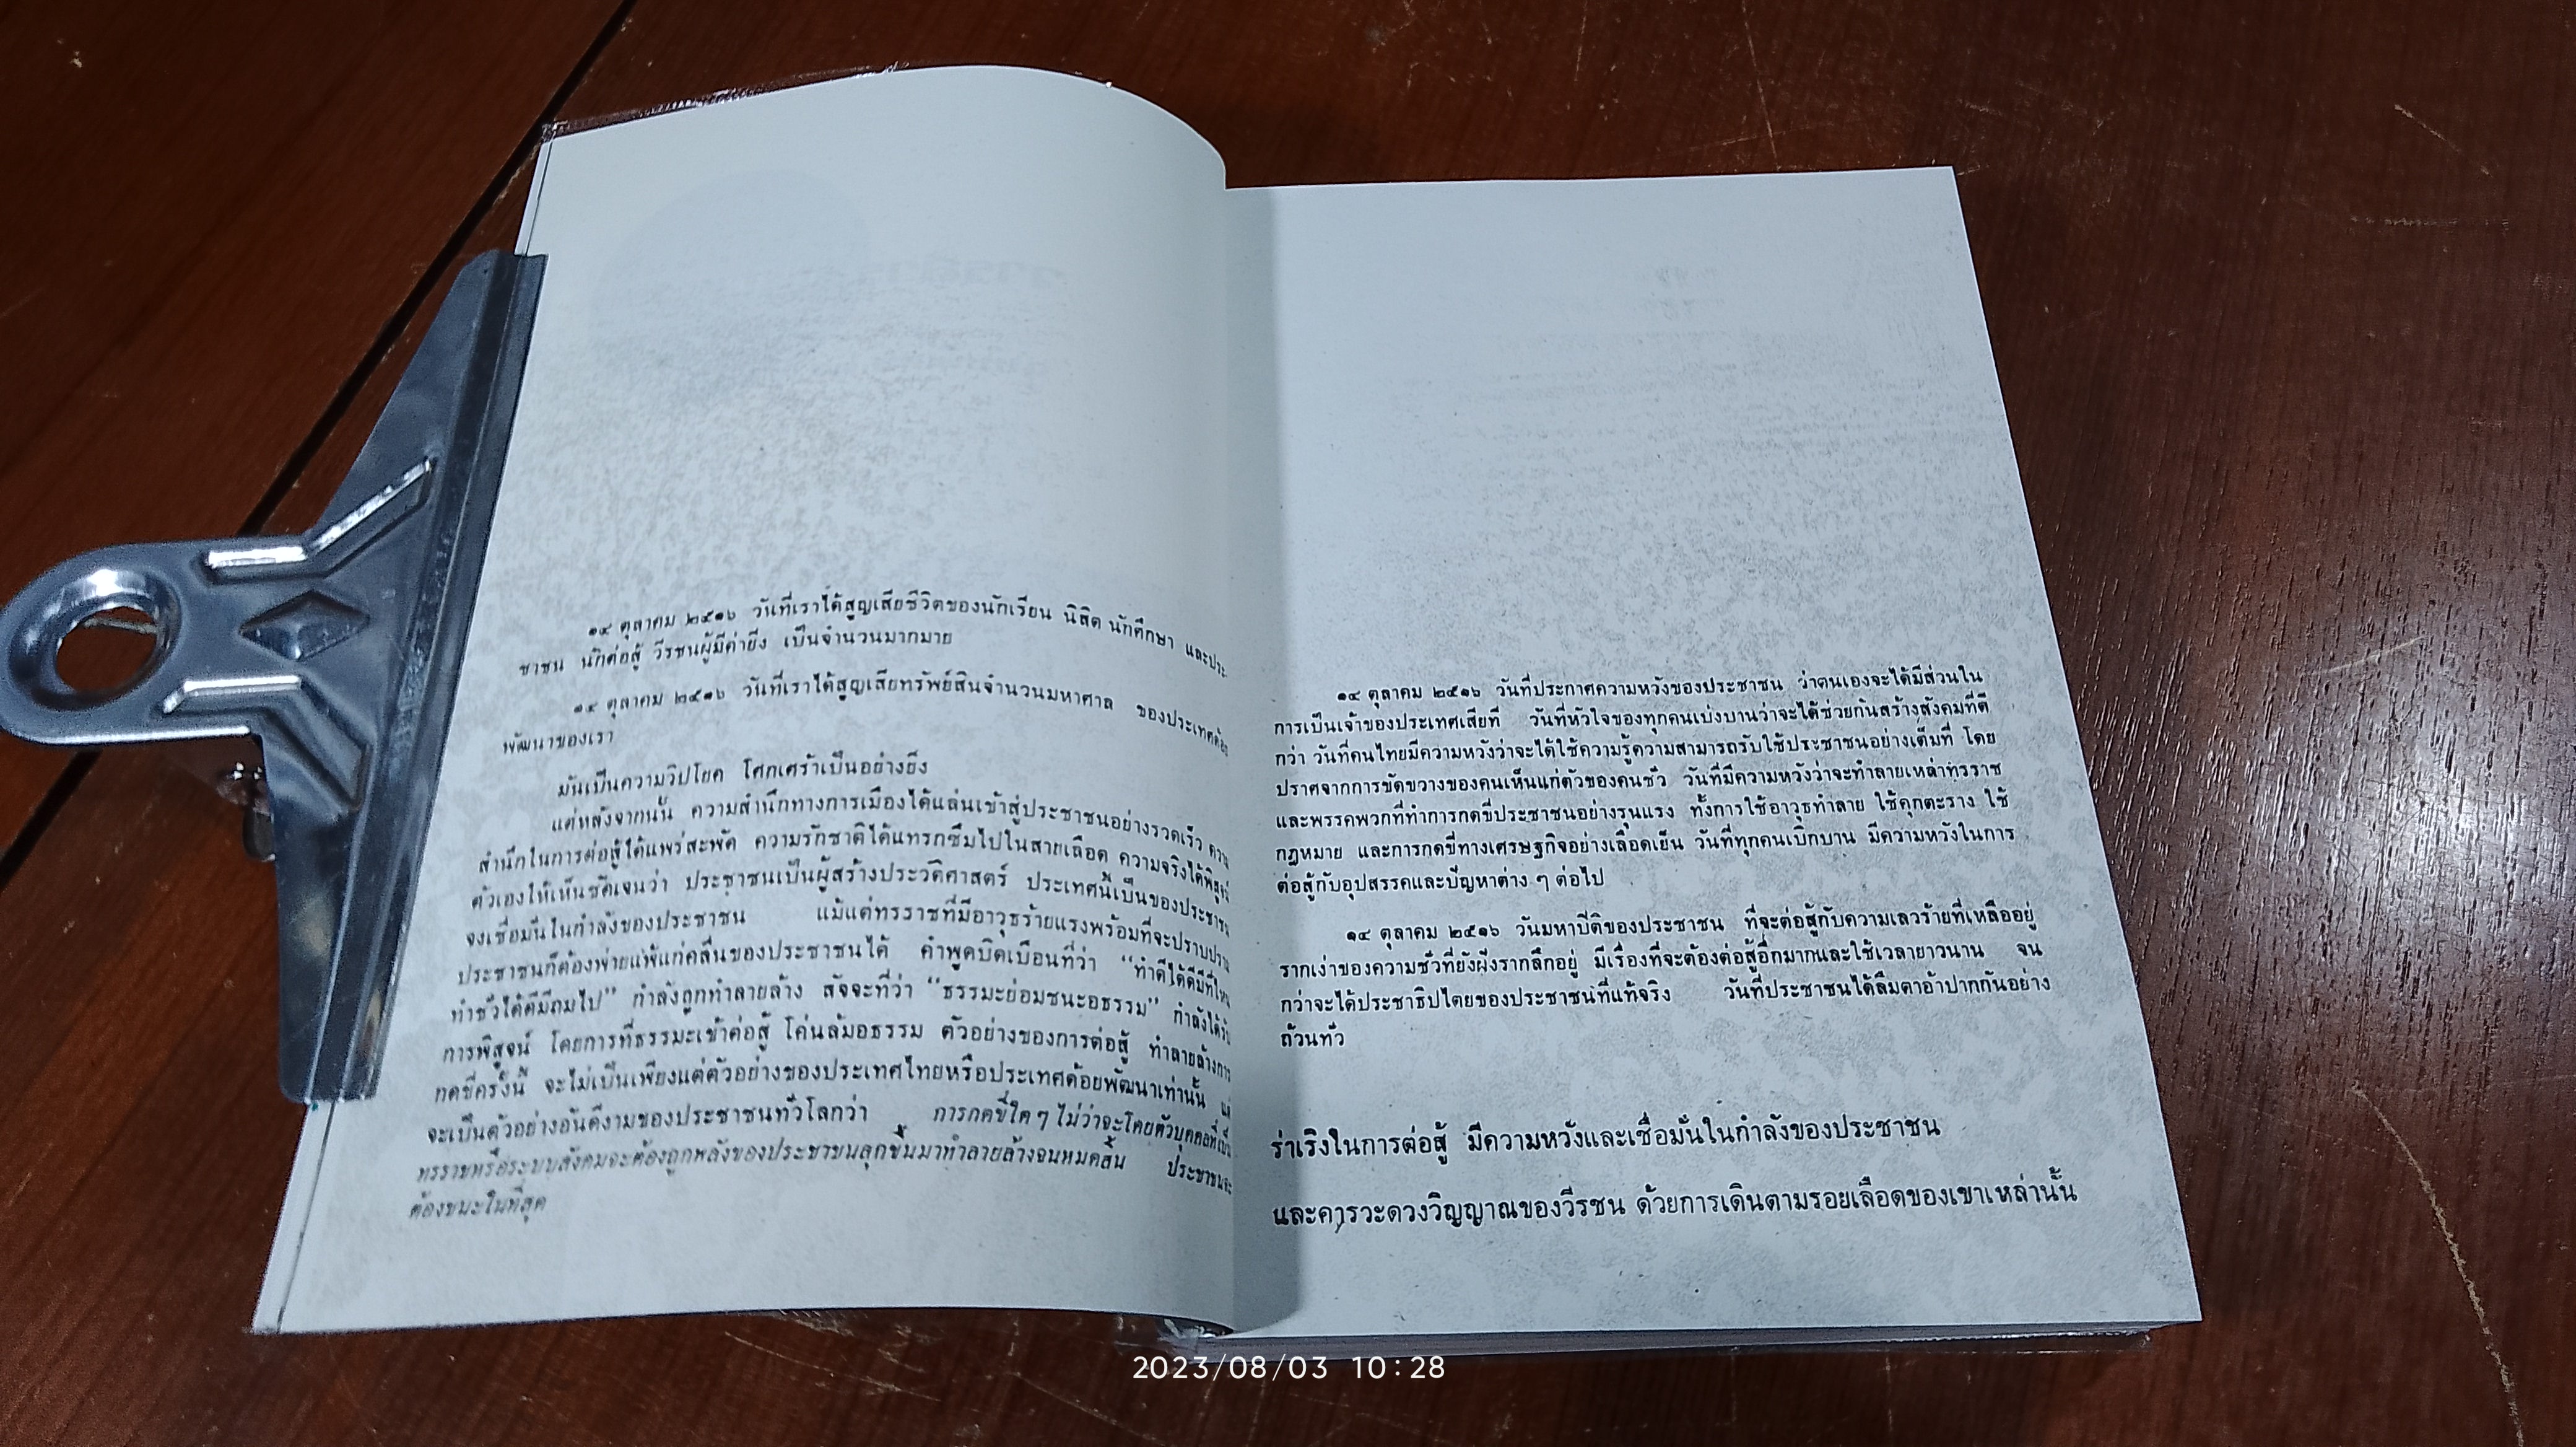 ๑๔ ตุลาคม ๒๕๑๖ วันที่เราได้สูญเสียชีวิตของนักเรียน นิสิต นักศึกษา และประ
ชาชน นักต่อสู้ วีรชนผู้มีค่ายิ่ง เป็นจำนวนมากมาย
๑๔ ตุลาคม ๒๕๑๖ วันที่เราได้สูญเสียทรัพย์สินจำนวนมหาศาล ของประเทศด้อย
พัฒนาของเรา
มันเป็นความวิปโยค โศกเศร้าเป็นอย่างยิ่ง
แต่หลังจากนั้น ความสำนึกทางการเมืองได้แล่นเข้าสู่ประชาชนอย่างรวดเร็ว ความ
สำนึกในการต่อสู้ได้แพร่สะพัด ความรักชาติได้แทรกซึมไปในสายเลือด ความจริงได้พิสูจน์
ตัวเองให้เห็นชัดเจนว่า ประชาชนเป็นผู้สร้างประวัติศาสตร์ ประเทศนี้เป็นของประชาชน
จงเชื่อมั่นในกำลังของประชาชน แม้แต่ทรราชที่มีอาวุธร้ายแรงพร้อมที่จะปราบปราม
ประชาชนก็ต้องพ่ายแพ้แก่คลื่นของประชาชนได้ คำพูดบิดเบือนที่ว่า “ทำดีได้ดีมีที่ไหน
ทำชั่วได้ดีมีถมไป” กำลังถูกทำลายล้าง สัจจะที่ว่า “ธรรมะย่อมชนะอธรรม” กำลังได้รับ
การพิสูจน์ โดยการที่ธรรมะเข้าต่อสู้ โค่นล้มอธรรม ตัวอย่างของการต่อสู้ ทำลายล้างการ
กดขี่ครั้งนี้ จะไม่เป็นเพียงแต่ตัวอย่างของประเทศไทยหรือประเทศด้อยพัฒนาเท่านั้น แต่
จะเป็นตัวอย่างอันดีงามของประชาชนทั่วโลกว่า การกดขี่ใด ๆ ไม่ว่าจะโดยตัวบุคคลที่เป็น
ทรราชหรือระบบสังคมจะต้องถูกพลังของประชาชนลุกขึ้นมาทำลายล้างจนหมดสิ้น ประชาชนจะ
ต้องชนะในที่สุด
๑๔ ตุลาคม ๒๕๑๖ วันที่ประกาศความหวังของประชาชน ว่าตนเองจะได้มีส่วนใน
การเป็นเจ้าของประเทศเสียที วันที่หัวใจของทุกคนเบ่งบานว่าจะได้ช่วยกันสร้างสังคมที่ดี
กว่า วันที่คนไทยมีความหวังว่าจะได้ใช้ความรู้ความสามารถรับใช้ประชาชนอย่างเต็มที่ โดย
ปราศจากการขัดขวางของคนเห็นแก่ตัวของคนชั่ว วันที่มีความหวังว่าจะทำลายเหล่าทรราช
และพรรคพวกที่ทำการกดขี่ประชาชนอย่างรุนแรง ทั้งการใช้อาวุธทำลาย ใช้คุกตะราง ใช้
กฎหมาย และการกดขี่ทางเศรษฐกิจอย่างเลือดเย็น วันที่ทุกคนเบิกบาน มีความหวังในการ
ต่อสู้กับอุปสรรคและปัญหาต่าง ๆ ต่อไป
๑๔ ตุลาคม ๒๕๑๖ วันมหาปีติของประชาชน ที่จะต่อสู้กับความเลวร้ายที่เหลืออยู่
รากเง่าของความชั่วที่ยังฝังรากลึกอยู่ มีเรื่องที่จะต้องต่อสู้อีกมากและใช้เวลายาวนาน จน
กว่าจะได้ประชาธิปไตยของประชาชนที่แท้จริง วันที่ประชาชนได้ลืมตาอ้าปากกันอย่าง
ถ้วนทั่ว
ร่าเริงในการต่อสู้ มีความหวังและเชื่อมั่นในกำลังของประชาชน
และคารวะดวงวิญญาณของวีรชน ด้วยการเดินตามรอยเลือดของเขาเหล่านั้น
2023/08/03 10:28